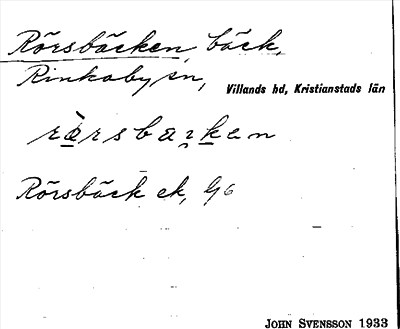 Rörsbäcken, bäck,
Rinkaby sn, Villands hd, Kristianstads län
Rörsbäck ek, G6
JOHN SVENSSON 1933